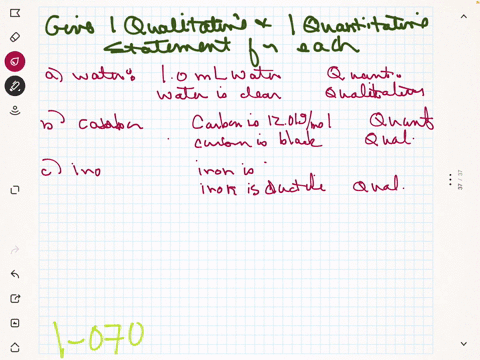 Give 1 Qualitative & 1 Quantitative
Statement for each
a) water: 1.0 mL water Quanti.
water is clear Qualitative
b) carbon Carbon is 12.01g/mol Quant
carbon is black Qual.
c) iro iron is
iron is ductile Qual.
1-070
37 / 37